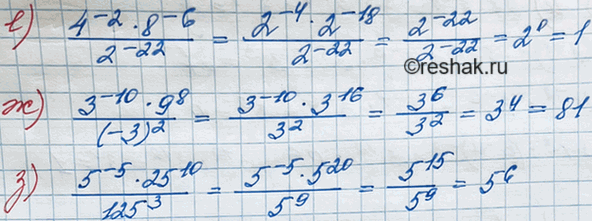 е) (4⁻² · 8⁻⁶)/2⁻²² = (2⁻⁴ · 2⁻¹⁸)/2⁻²² = 2⁻²²/2⁻²² = 2⁰ = 1
©reshak.ru
ж) (3⁻¹⁰ · 9⁸)/(-3)² = (3⁻¹⁰ · 3¹⁶)/3² = 3⁶/3² = 3⁴ = 81
з) (5⁻⁵ · 25¹⁰)/125³ = (5⁻⁵ · 5²⁰)/5⁹ = 5¹⁵/5⁹ = 5⁶